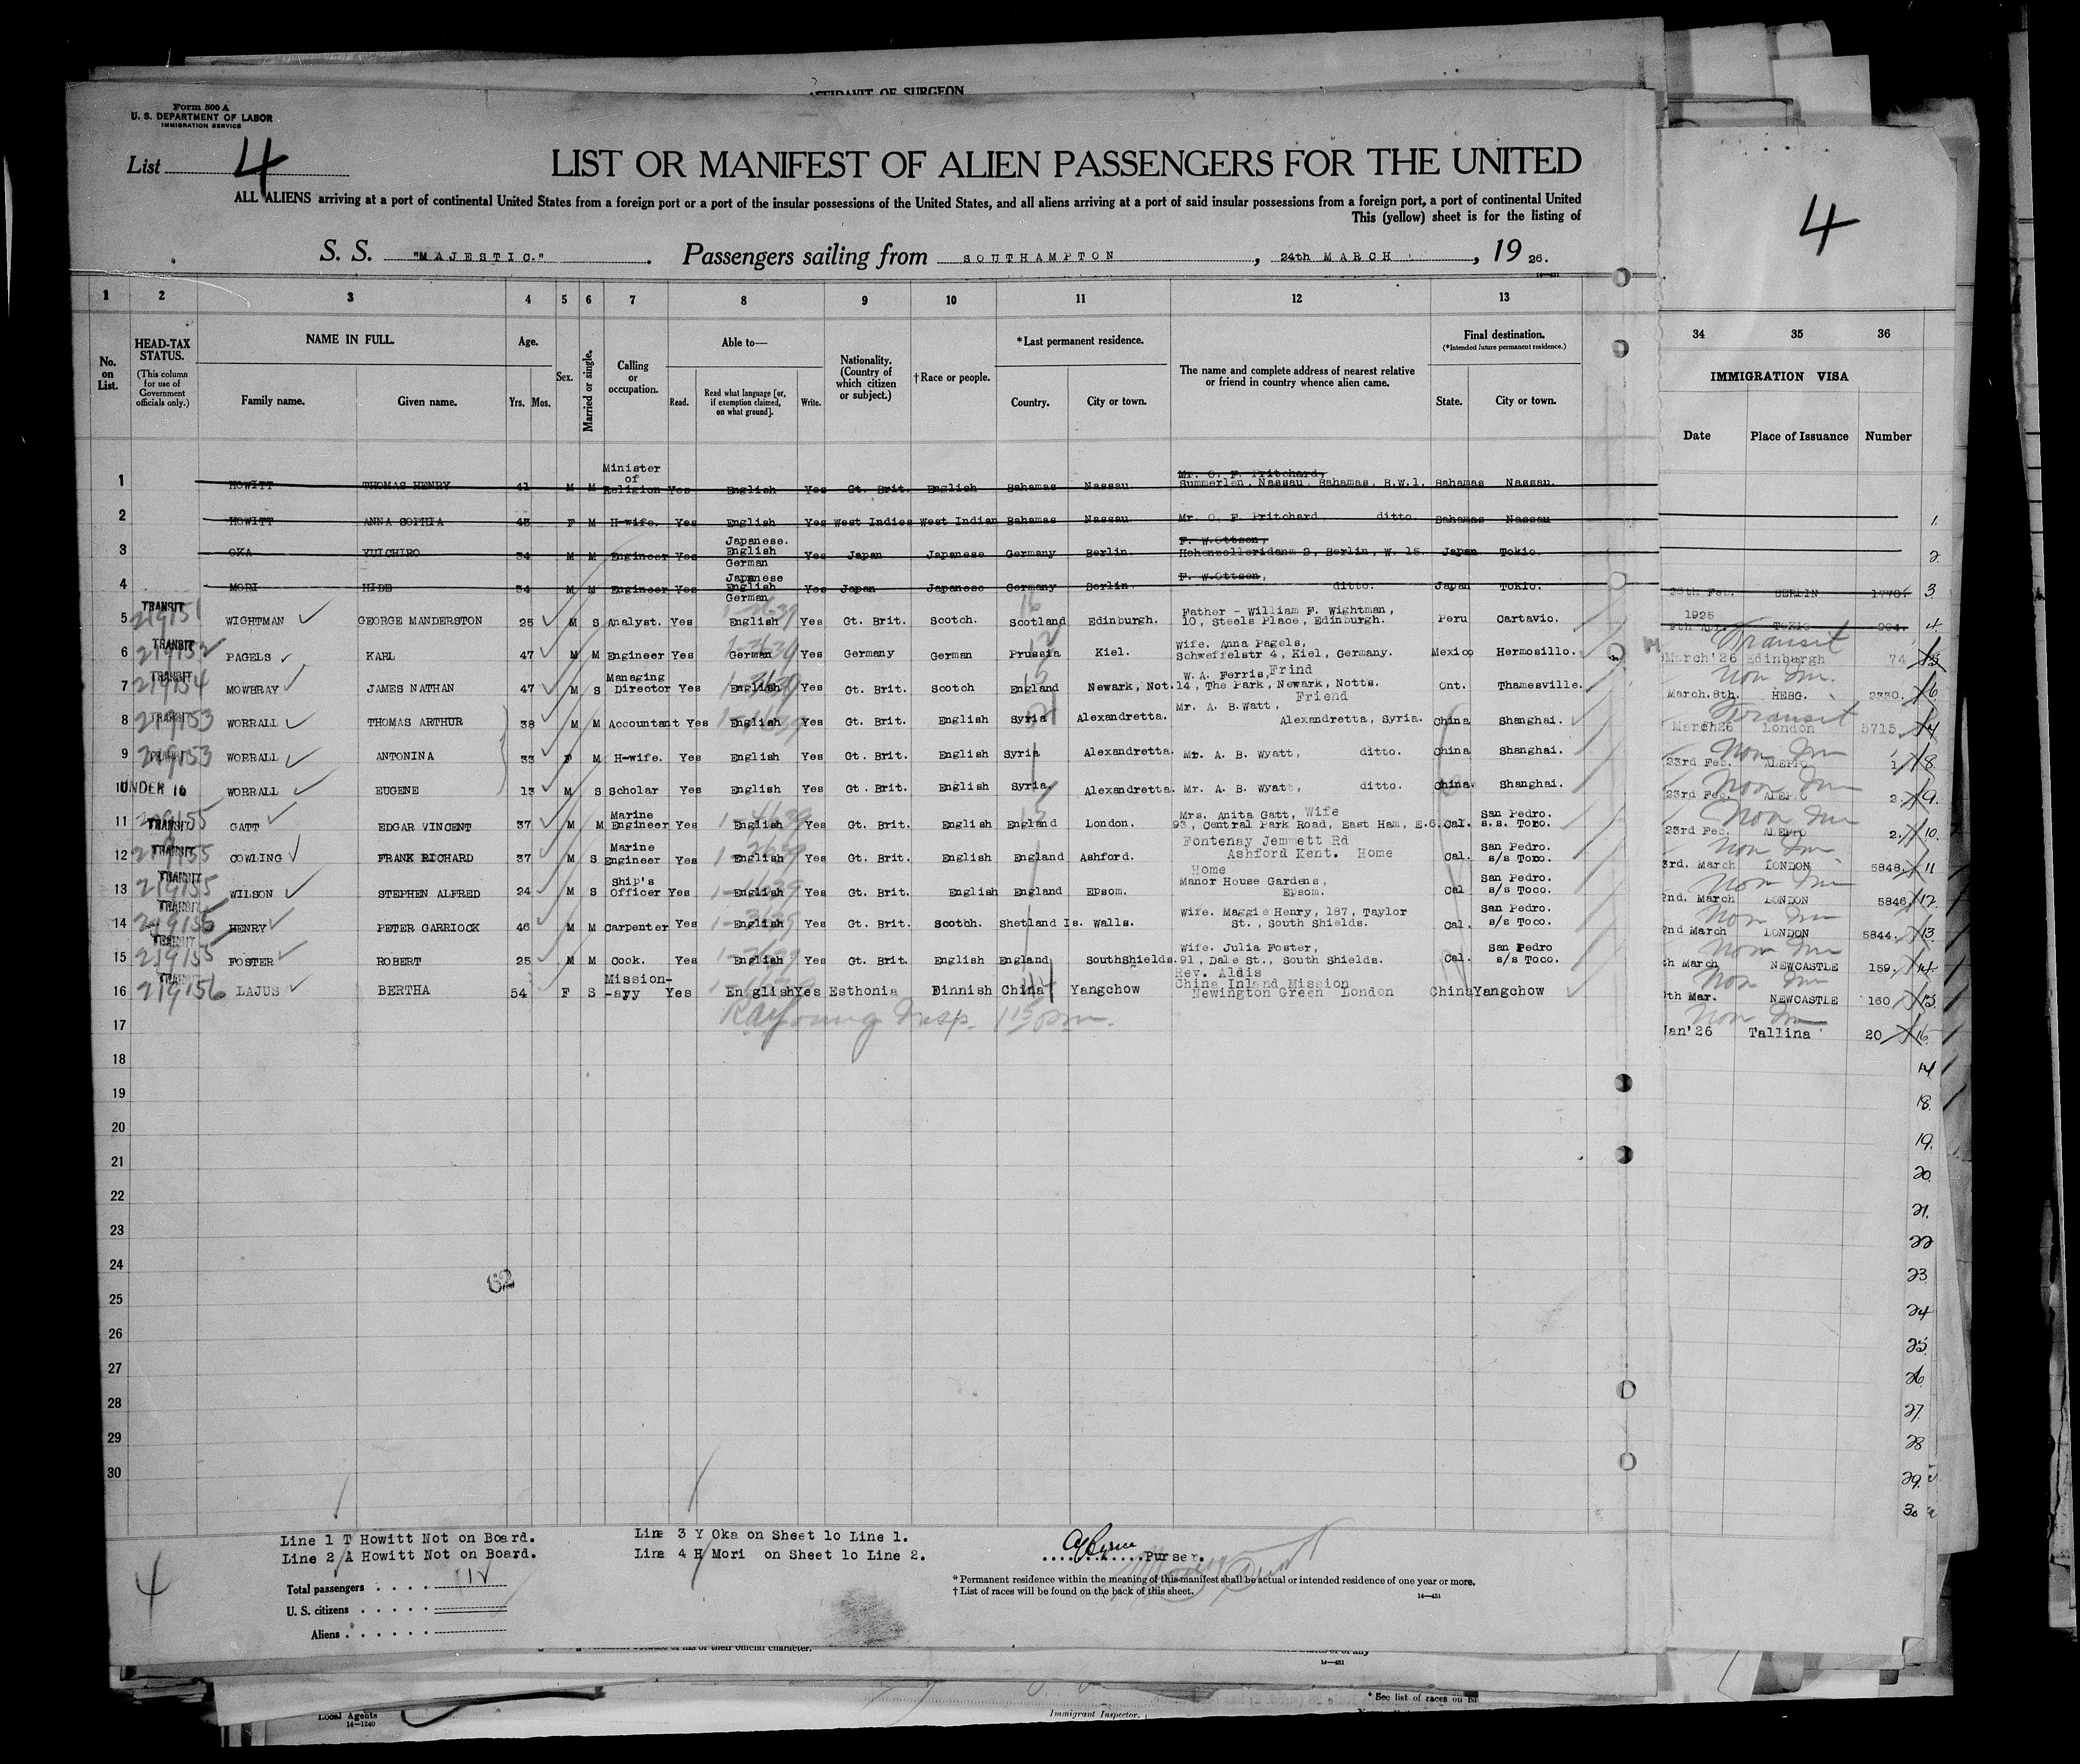 AFFIDAVIT OF SURGEON
Form 500 A
U. S. DEPARTMENT OF LABOR
IMMIGRATION SERVICE
List 4
LIST OR MANIFEST OF ALIEN PASSENGERS FOR THE UNITED
ALL ALIENS arriving at a port of continental United States from a foreign port or a port of the insular possessions of the United States, and all aliens arriving at a port of said insular possessions from a foreign port, a port of continental United
This (yellow) sheet is for the listing of
S. S. "MAJESTIC." Passengers sailing from SOUTHAMPTON, 24th MARCH, 1926.
4
1 2 3 4 5 6 7 8 9 10 11 12 13
34 35 36
No. on List.
HEAD-TAX STATUS.
(This column for use of Government officials only.)
NAME IN FULL.
Family name. Given name.
Age.
Yrs. Mos.
Sex.
Married or single.
Calling or occupation.
Able to—
Read. Read what language [or, if exemption claimed, on what ground]. Write.
Nationality. (Country of which citizen or subject.)
†Race or people.
*Last permanent residence.
Country. City or town.
The name and complete address of nearest relative or friend in country whence alien came.
Final destination.
(*Intended future permanent residence.)
State. City or town.
IMMIGRATION VISA
Date Place of Issuance Number
1 HOWITT THOMAS HENRY 41 M M Minister of Religion Yes English Yes Gt. Brit. English Bahamas Nassau Mr. O. F. Pritchard, Summerlen, Nassau, Bahamas, B.W.I. Bahamas Nassau.
2 HOWITT ANNA SOPHIA 43 F M H-wife. Yes English Yes West Indies West Indian Bahamas Nassau Mr. O. F. Pritchard ditto. Bahamas Nassau
3 OKA YUICHIRO 34 M M Engineer Yes Japanese. English German Yes Japan Japanese Germany Berlin. F. W.Ottsen, Hohenzolleridanm 2, Berlin, W. 15. Japan Tokio.
4 MORI HIDE 34 M M Engineer Yes Japanese English German Yes Japan Japanese Germany Berlin. F. W.Ottsen, ditto. Japan Tokio.
5 TRANSIT 219151 WIGHTMAN GEORGE MANDERSTON 25 M S Analyst. Yes English Yes Gt. Brit. Scotch. Scotland Edinburgh. Father - William F. Wightman, 10, Steels Place, Edinburgh. Peru Cartavio.
6 TRANSIT 219152 PAGELS KARL 47 M M Engineer Yes German Yes Germany German Prussia Kiel. Wife. Anna Pagels, Schweffelstr 4, Kiel, Germany. Mexico Hermosillo.
7 TRANSIT 219154 MOWBRAY JAMES NATHAN 47 M S Managing Director Yes English Yes Gt. Brit. Scotch England Newark, Not. W.A. Ferris, Frind 14, The Park, Newark, Notts. Ont. Thamesville.
8 TRANSIT 219153 WORRALL THOMAS ARTHUR 38 M M Accountant Yes English Yes Gt. Brit. English Syria Alexandretta. Friend Mr. A. B. Watt, Alexandretta, Syria. China Shanghai.
9 219153 WORRALL ANTONINA 33 F M H-wife. Yes English Yes Gt. Brit. English Syria Alexandretta. Mr. A. B. Wyatt, ditto. China Shanghai.
10 UNDER 16 WORRALL EUGENE 13 M S Scholar Yes English Yes Gt. Brit. English Syria Alexandretta. Mr. A. B. Wyatt, ditto. China Shanghai.
11 219155 TRANSIT GATT EDGAR VINCENT 37 M M Marine Engineer Yes English Yes Gt. Brit. English England London. Mrs. Anita Gatt, Wife 93, Central Park Road, East Ham, E.6. Cal. San Pedro. s.s. Toro.
12 TRANSIT 219155 COWLING FRANK RICHARD 37 M S Marine Engineer Yes English Yes Gt. Brit. English England Ashford. Fontenay Jemmett Rd Ashford Kent. Home Cal. San Pedro. s/s Toro.
13 TRANSIT 219155 WILSON STEPHEN ALFRED 24 M S Ship's Officer Yes English Yes Gt. Brit. English England Epsom. Home Manor House Gardens, Epsom. Cal San Pedro. s/s Toco.
14 TRANSIT 219155 HENRY PETER GARRIOCK 46 M M Carpenter Yes English Yes Gt. Brit. Scotch. Shetland Is. Walls. Wife. Maggie Henry, 187, Taylor St., South Shields. Cal. San Pedro. s/s Toco.
15 TRANSIT 219155 FOSTER ROBERT 25 M M Cook. Yes English Yes Gt. Brit. English England SouthShields. Wife. Julia Foster, 91, Dale St., South Shields. Cal. San Pedro s/s Toco.
16 TRANSIT 219156 LAJUS BERTHA 54 F S Mission-ayy Yes English Yes Esthonia Finnish China Yangchow Rev. Aldis China Inland Mission Newington Green London China Yangchow
17
18
19
20
21
22
23
24
25
26
27
28
29
30
62
28th Feb. BERLIN 1778. 3
1925
9th Apr. TOKIO 4
Transit
March'26 Edinburgh 74
Non Im.
March.8th. HEBG. 2330. 6
Transit
March26 London 5715
Non Im
23rd Feb. ALEPPO 1 8
Non Im
23rd Feb. ALEPPO 2. 9.
Non Im
23rd Feb. ALEPPO 2. 10.
Non Im
3rd. March LONDON 5848 11
Non Im
2nd. March LONDON 5846 12.
Non Im
2nd March LONDON 5844. 13
Non Im
th March NEWCASTLE 159. 14
Non Im
9th Mar. NEWCASTLE 160 15.
Non Im
Jan'26 Tallina 20 16
18.
19.
20
21.
22
23
24
25.
26
27.
28
29.
30
Line 1 T Howitt Not on Board.
Line 2 A Howitt Not on Board.
Line 3 Y Oka on Sheet 1o Line 1.
Line 4 H Mori on Sheet 1o Line 2.
Purser.
4
Total passengers
U. S. citizens
Aliens
* Permanent residence within the meaning of this manifest shall be actual or intended residence of one year or more.
† List of races will be found on the back of this sheet.
14—431
Local Agents
14—1240
Immigrant Inspector.
* See list of races on